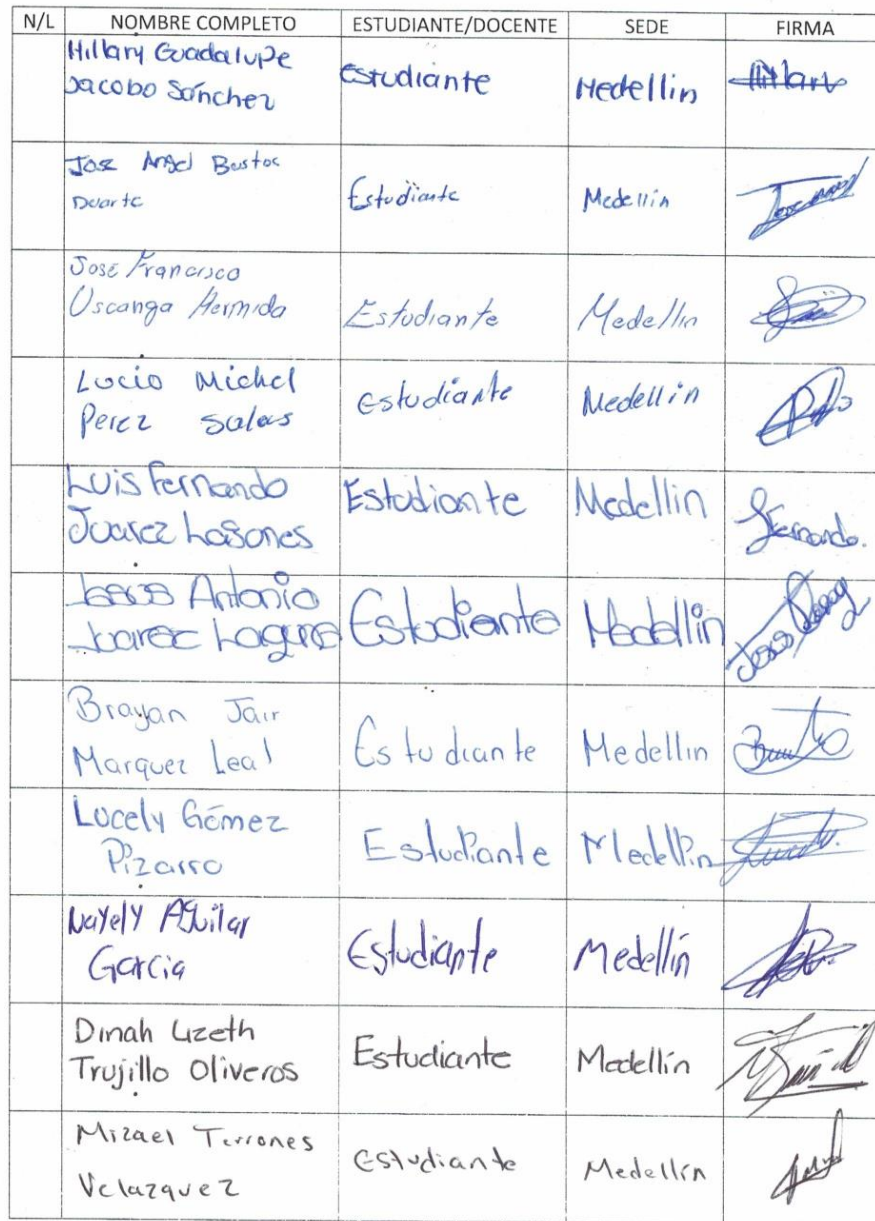 N/L NOMBRE COMPLETO ESTUDIANTE/DOCENTE SEDE FIRMA
Hillary Guadalupe
Jacobo Sánchez Estudiante Medellin Hillary
Jose Angel Bustos
Duarte Estudiante Medellín
José Francisco
Uscanga Hermida Estudiante Medellín
Lucio Michel
Perez Salas Estudiante Medellin
Luis Fernando
Juarez Lagones Estudiante Medellin Fernando.
Jesus Antonio
Juarez Laguna Estudiante Medellin Jesus
Brayan Jair
Marquez Leal Estudiante Medellin
Lucely Gómez
Pizarro Estudiante Medellin
Nayely Aguilar
Garcia Estudiante Medellín
Dinah Lizeth
Trujillo Oliveros Estudiante Medellín
Mizael Terrones
Velazquez Estudiante Medellín